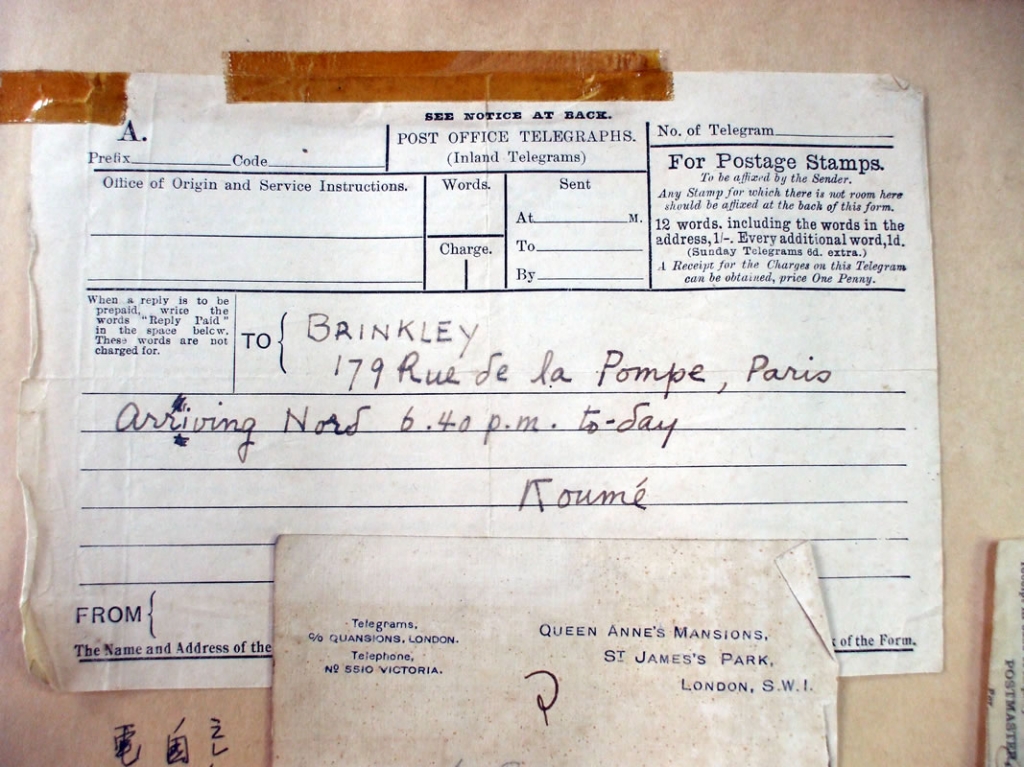 SEE NOTICE AT BACK.
A.
Prefix Code
POST OFFICE TELEGRAPHS.
(Inland Telegrams)
No. of Telegram
For Postage Stamps.
To be affixed by the Sender.
Any Stamp for which there is not room here
should be affixed at the back of this form.
12 words. including the words in the
address, 1/-. Every additional word, 1d.
(Sunday Telegrams 6d. extra.)
A Receipt for the Charges on this Telegram
can be obtained, price One Penny.
Office of Origin and Service Instructions.
Words.
Charge.
Sent
At M.
To
By
When a reply is to be
prepaid, write the
words "Reply Paid"
in the space below.
These words are not
charged for.
TO
BRINKLEY
179 Rue de la Pompe, Paris
Arriving Nord 6.40 p.m. to-day
Koumé
FROM
The Name and Address of the
of the Form.
Telegrams,
C/O QUANSIONS, LONDON.
Telephone,
Nº 5510 VICTORIA.
QUEEN ANNE'S MANSIONS,
ST JAMES'S PARK,
LONDON, S.W.1.
電
自
POSTMASTER